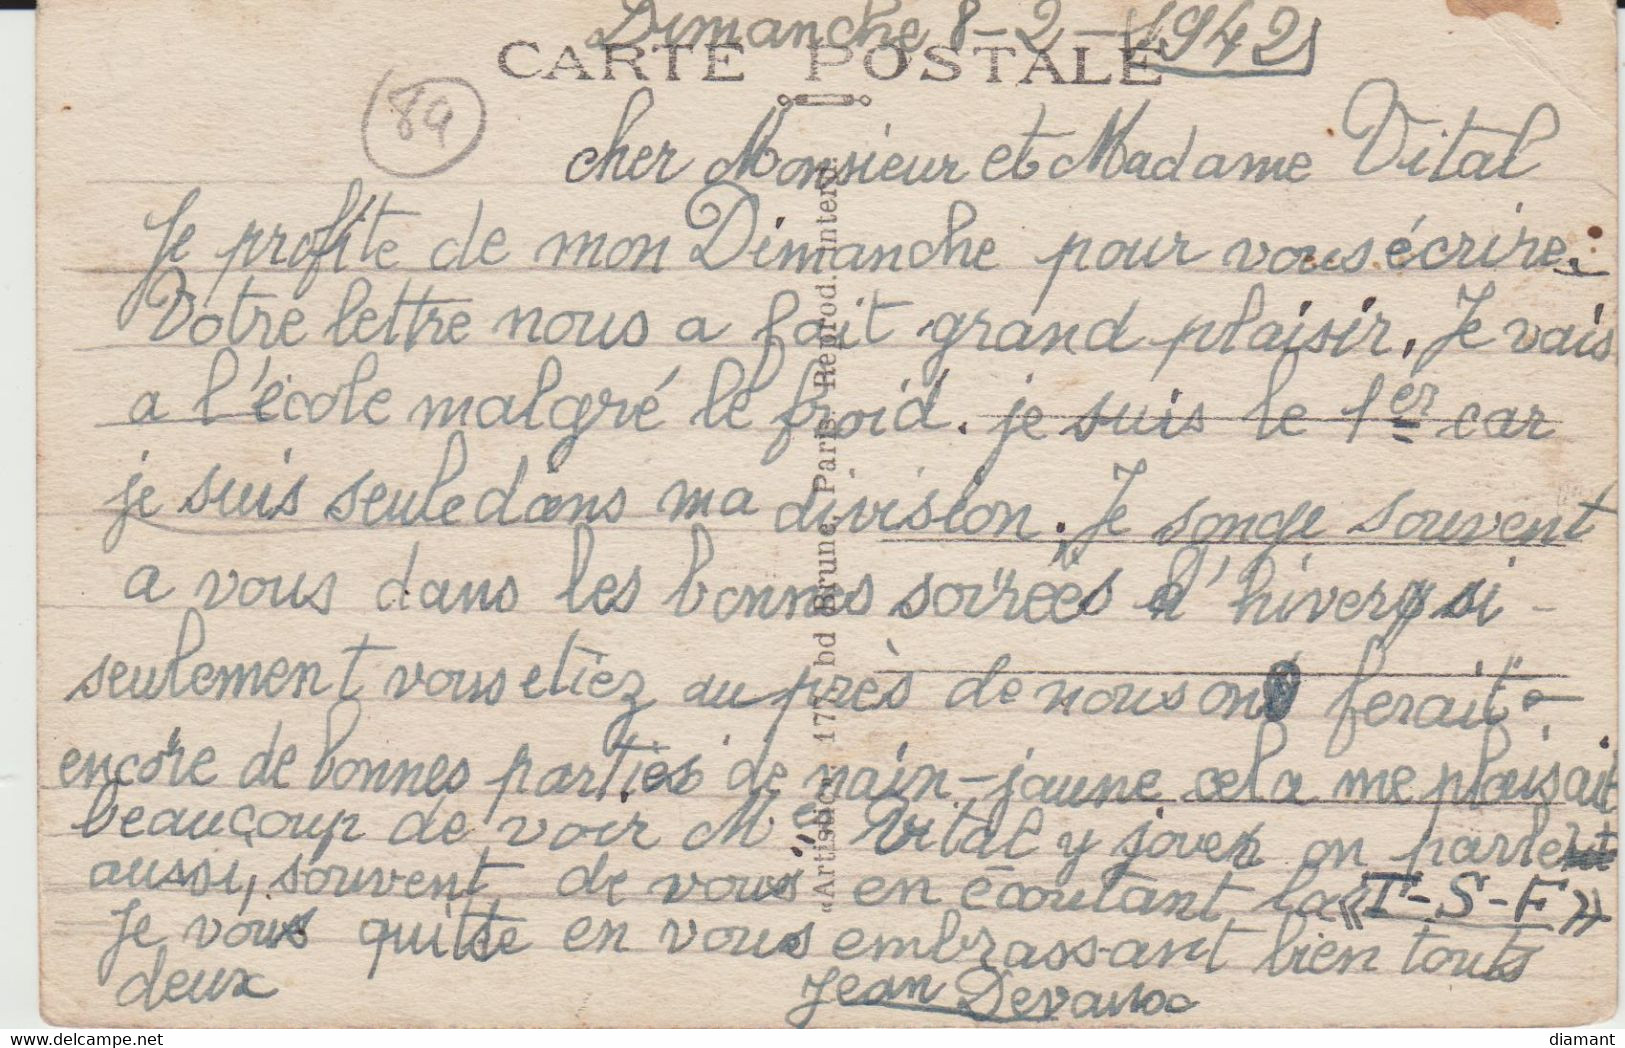 Dimanche 8-2-1942
CARTE POSTALE
89
cher Monsieur et Madame Vital
Je profite de mon Dimanche pour vous écrire.
Votre lettre nous a fait grand plaisir. Je vais
a l'école malgré le froid. je suis le 1er car
je suis seule dans ma division. Je songe souvent
a vous dans les bonnes soirées d'hiver si
seulement vous etiez au près de nous on ferait
encore de bonnes parties de nain-jaune cela me plaisait
beaucoup de voir Me Vital y jouer on parle
aussi, souvent de vous en écoutant la «T-S-F»
Je vous quitte en vous embrassant bien touts
deux
Jean
«Artisbo», 177, bd Brune, Paris. Reprod. interd.
delcampe.net
diamant